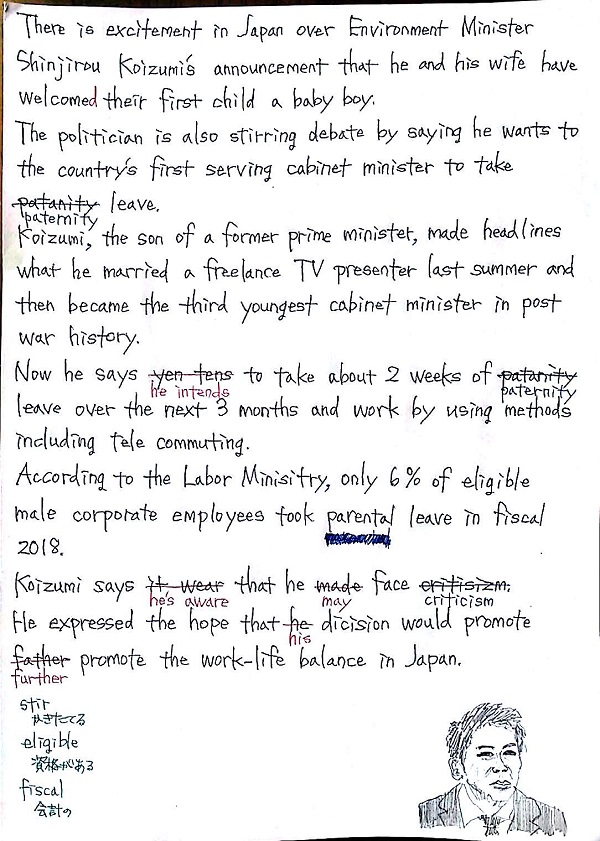 There is excitement in Japan over Environment Minister
Shinjirou Koizumi's announcement that he and his wife have
welcomed their first child a baby boy.
The politician is also stirring debate by saying he wants to
the country's first serving cabinet minister to take
patanity leave.
paternity
Koizumi, the son of a former prime minister, made headlines
what he married a freelance TV presenter last summer and
then became the third youngest cabinet minister in post
war history.
Now he says yen tens to take about 2 weeks of patanity
he intends paternity
leave over the next 3 months and work by using methods
including tele commuting.
According to the Labor Minisitry, only 6% of eligible
male corporate employees took parental leave in fiscal
2018.
Koizumi says it wear that he made face critisizm.
he's aware may criticism
He expressed the hope that he dicision would promote
his
father promote the work-life balance in Japan.
further
stir
かきたてる
eligible
資格がある
fiscal
会計の